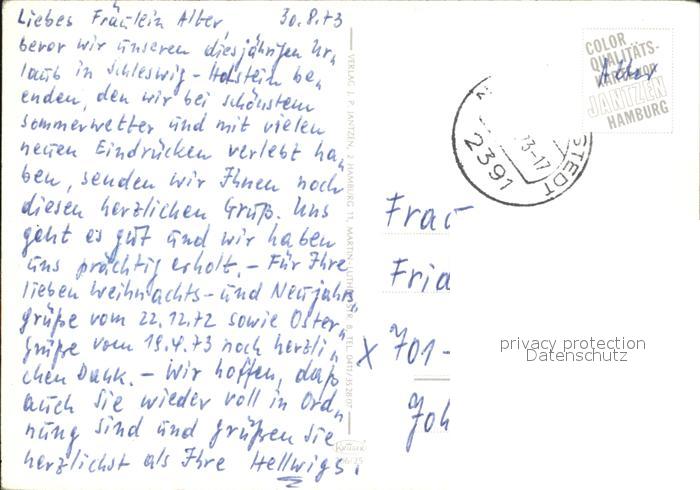 Liebes Fräulein Alter 30.8.73
bevor wir unseren diesjährigen Ur„
laub in Schleswig-Holstein be„
enden, den wir bei schönstem
Sommerwetter und mit vielen
neuen Eindrücken verlebt ha„
ben, senden wir Ihnen noch
diesen herzlichen Gruß. Uns
geht es gut und wir haben
uns prächtig erholt. – Für Ihre
lieben Weihnachts- und Neujahrs„
grüße vom 22.12.72 sowie Oster„
grüße vom 19.4.73 noch herzli„
chen Dank. – Wir hoffen, daß
auch Sie wieder voll in Ord„
nung sind und grüßen Sie
herzlichst als Ihre Hellwigs.
VERLAG: J. P. JANTZEN, 2 HAMBURG 11, MARTIN-LUTHER-STR. 8, TEL. 0411/352807
Krüger
COLOR
QUALITÄTS-
JANTZEN
HAMBURG
2391
73-17
STEDT
Frau
Frid
X 701-
Joh
privacy protection
Datenschutz